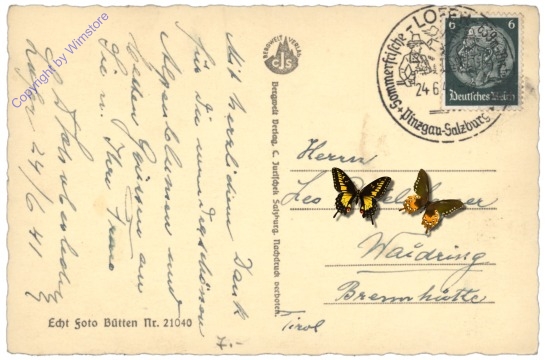 Copyright by Wimstore
Mit herzlichem Dank
für die wunderschönen
Alpenblumen und
besten Grüssen an
Sie u. Ihre Frau
Lofer 24/6 41
BERGWELT VERLAG
CJS
Bergwelt Verlag, C. Jurischek Salzburg. Nachdruck verboten.
Echt Foto Bütten Nr. 21040
LOFER
Sommerfrische
24.6.4
Pinzgau-Salzburg
6 6
Deutsches Reich
Herrn
Waidring
Tirol